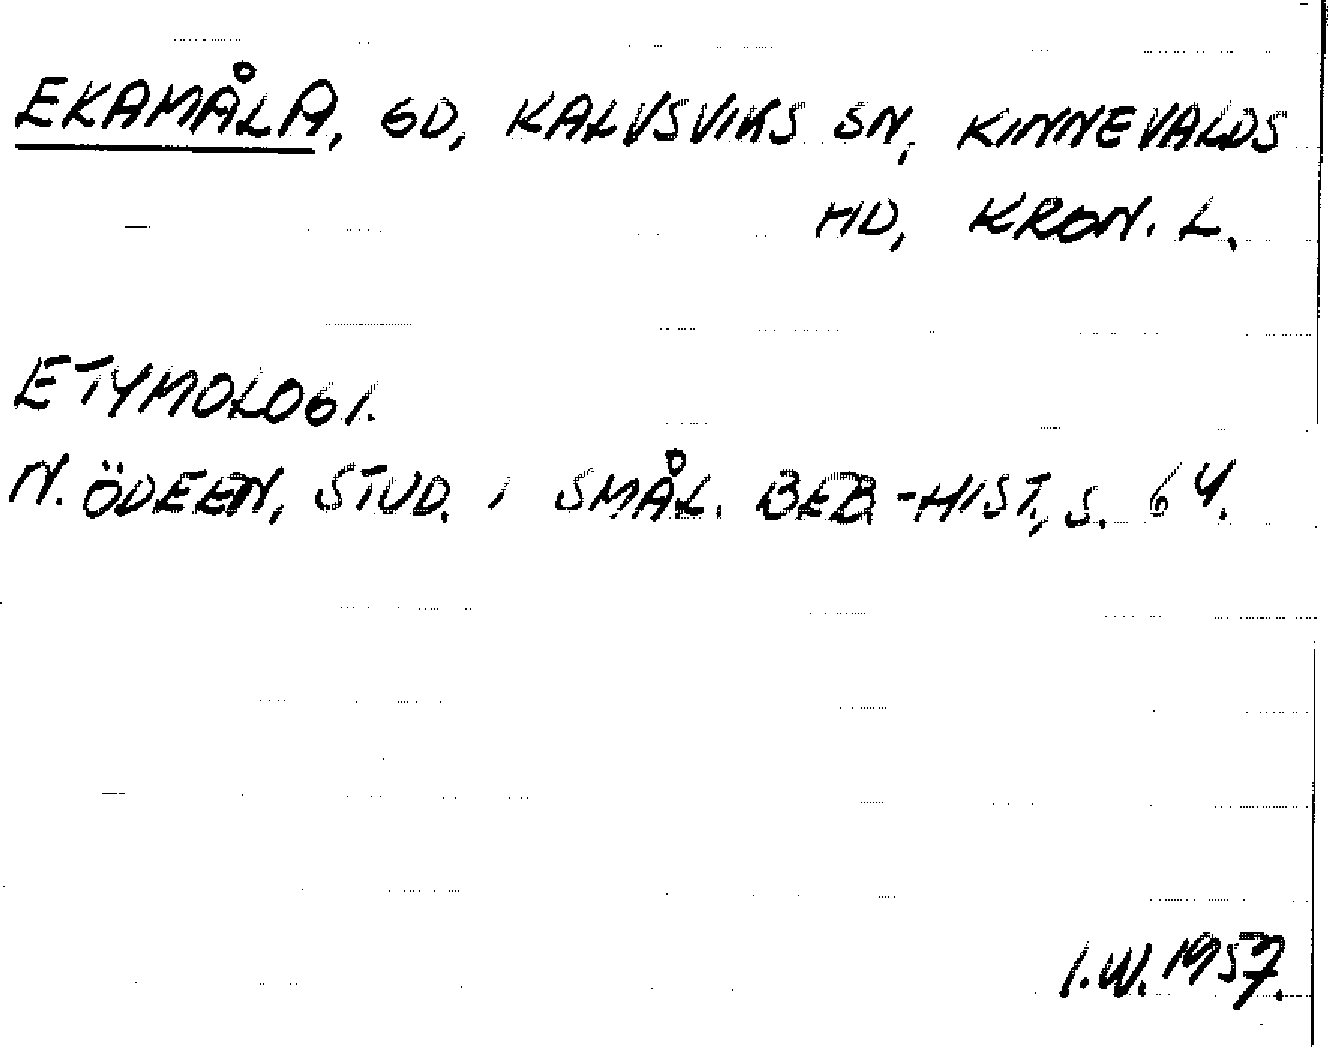 EKAMÅLA, GD, KALVSVIKS SN, KINNEVALDS
HD, KRON. L.
ETYMOLOGI.
N. ÖDEEN, STUD. I SMÅL. BEB-HIST., S. 64.
I.W. 1957.